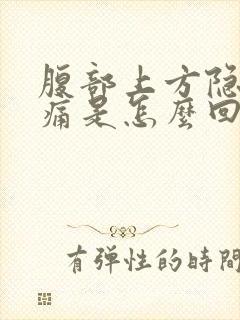 腹部上方隐
痛是怎麽回
有弹性的時間